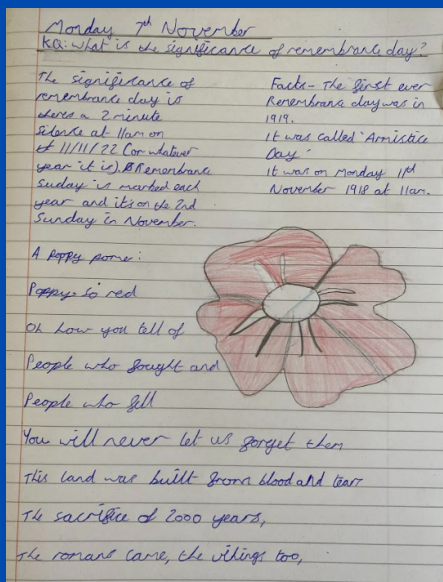 Monday 7th November
KQ: What is the significance of remembrance day?
The significance of
remembrance day is
theres a 2 minute
silence at 11am on
11/11/22 (or whatever
year it is). Remembrance
sunday is marked each
year and it's on the 2nd
Sunday in November.
Facts - The first ever
Remembrance day was in
1919.
It was called 'Armistice
Day'
It was on Monday 11th
November 1918 at 11am.
A poppy pome:
Poppy so red
Oh how you tell of
People who fought and
People who fell
You will never let us forget them
This land was built from blood and tears
The sacrifice of 2000 years,
The romans came, the vikings too,